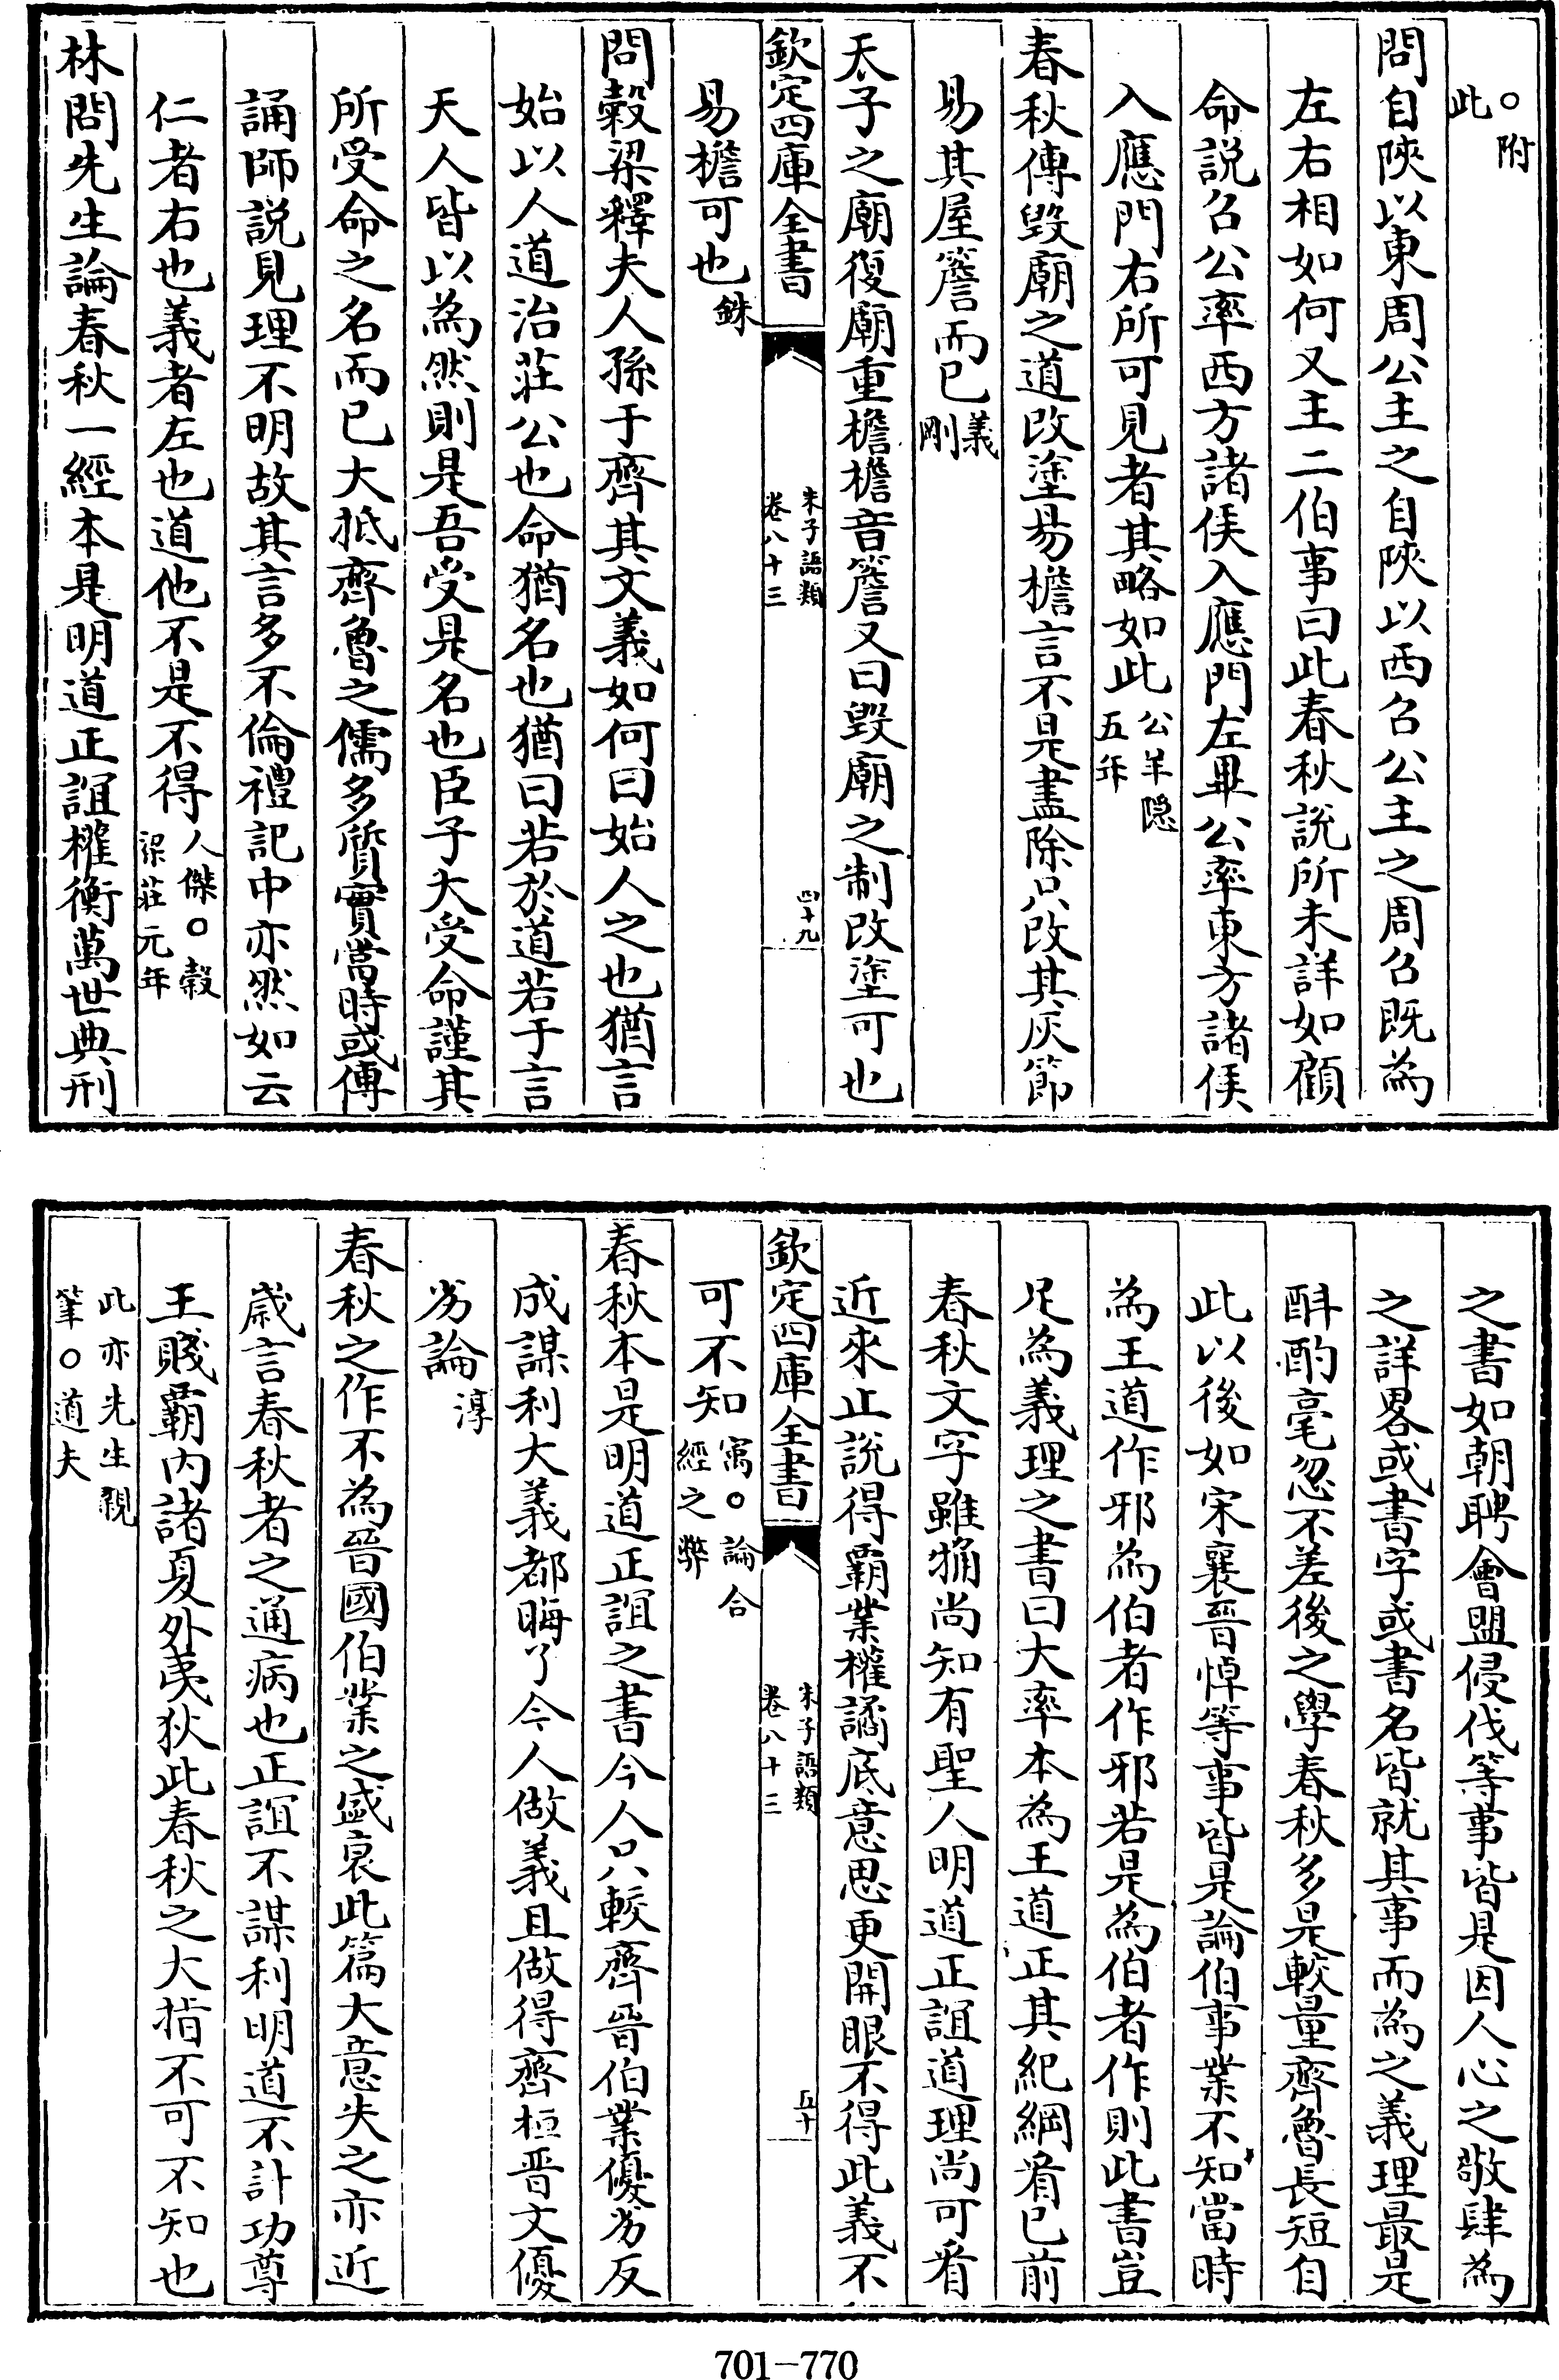 ○附
此
問自陜以東周公主之自陜以西召公主之周召既為
左右相如何又主二伯事曰此春秋説所未詳如顧
命説召公率西方諸侯入應門左畢公率東方諸侯
入應門右所可見者其略如此公羊隠
五年
春秋傳毀廟之道改塗易檐言不是盡除只改其灰節
易其屋簷而已義
剛
天子之廟復廟重檐檐音簷又曰毀廟之制改塗可也
欽定四庫全書
朱子語類
卷八十三
四十九
易檐可也銖
問穀梁釋夫人孫于齊其文義如何曰始人之也猶言
始以人道治莊公也命猶名也猶曰若於道若于言
天人皆以為然則是吾受是名也臣子大受命謹其
所受命之名而已大抵齊魯之儒多質實當時或傳
誦師説見理不明故其言多不倫禮記中亦然如云
仁者右也義者左也道他不是不得人傑○穀
梁莊元年
林問先生論春秋一經本是明道正誼權衡萬世典刑
之書如朝聘會盟侵伐等事皆是因人心之敬肆為
之詳畧或書字或書名皆就其事而為之義理最是
斟酌毫忽不差後之學春秋多是較量齊魯長短自
此以後如宋襄晉悼等事皆是論伯事業不知當時
為王道作邪為伯者作邪若是為伯者作則此書豈
足為義理之書曰大率本為王道正其紀綱看已前
春秋文字雖觕尚知有聖人明道正誼道理尚可看
近來止説得霸業權譎底意思更開眼不得此義不
欽定四庫全書
朱子語類
卷八十三
五十
可不知㝢○論合
經之弊
春秋本是明道正誼之書今人只較齊晉伯業優劣反
成謀利大義都晦了今人做義且做得齊桓晉文優
劣論淳
春秋之作不為晉國伯業之盛衰此篇大意失之亦近
歲言春秋者之通病也正誼不謀利明道不計功尊
王賤霸内諸夏外夷狄此春秋之大指不可不知也
此亦先生親
筆○道夫
701-770